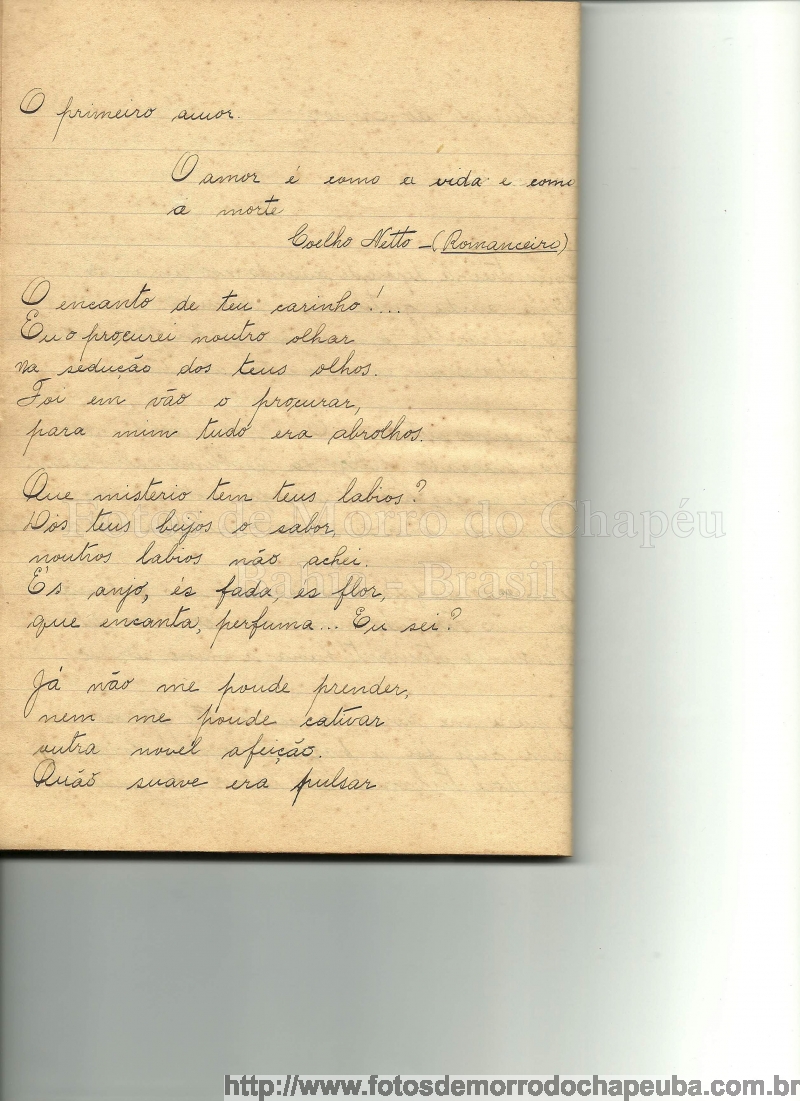 O primeiro amor.
O amor é como a vida e como
a morte
Coelho Netto - (Romanceiro)
O encanto de teu carinho!...
Eu o procurei noutro olhar
na sedução dos teus olhos.
Foi em vão o procurar,
para mim tudo era abrolhos.
Que misterio tem teus labios?
Dos teus beijos o sabor,
noutros labios não achei.
És anjo, és fada, és flor,
que encanta, perfuma... Eu sei?
Já não me poude prender,
nem me poude cativar
outra novel afeição.
Quão suave era pulsar
Fotos de Morro do Chapéu
Bahia - Brasil
http://www.fotosdemorrodochapeuba.com.br